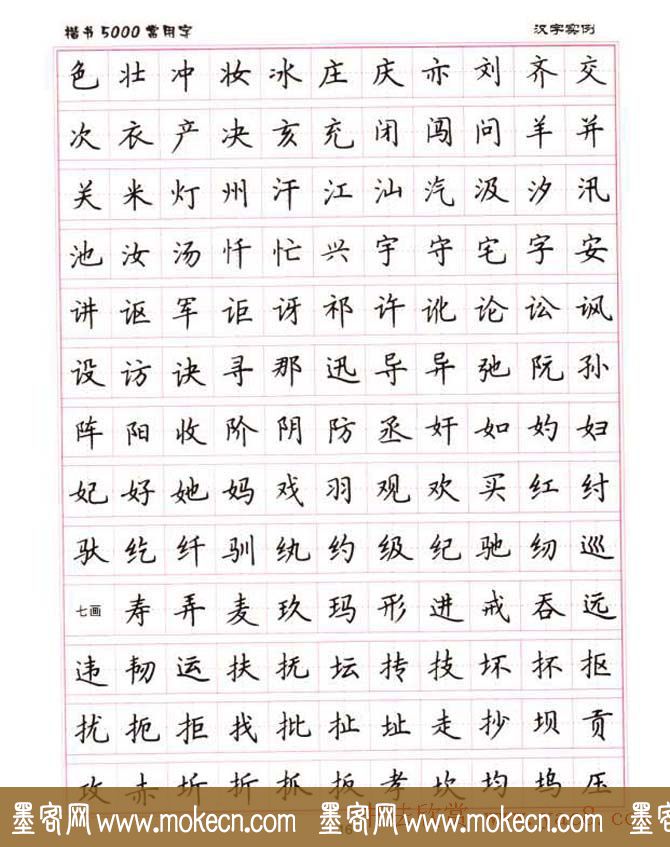 楷书5000常用字 汉字实例
色 壮 冲 妆 冰 庄 庆 亦 刘 齐 交
次 衣 产 决 亥 充 闭 闯 问 羊 并
关 米 灯 州 汗 江 汕 汽 汲 汐 汛
池 汝 汤 忏 忙 兴 宇 守 宅 字 安
讲 讴 军 讵 讶 祁 许 讹 论 讼 讽
设 访 诀 寻 那 迅 导 异 弛 阮 孙
阵 阳 收 阶 阴 防 丞 奸 如 妁 妇
妃 好 她 妈 戏 羽 观 欢 买 红 纣
驮 纥 纤 驯 纨 约 级 纪 驰 纫 巡
七画 寿 弄 麦 玖 玛 形 进 戒 吞 远
违 韧 运 扶 抚 坛 抟 技 坏 抔 抠
扰 扼 拒 找 批 扯 址 走 抄 坝 贡
攻 赤 圻 折 抓 扳 孝 坎 均 坞 压
墨客网 www.mokecn.com 墨客网 www.mokecn.com